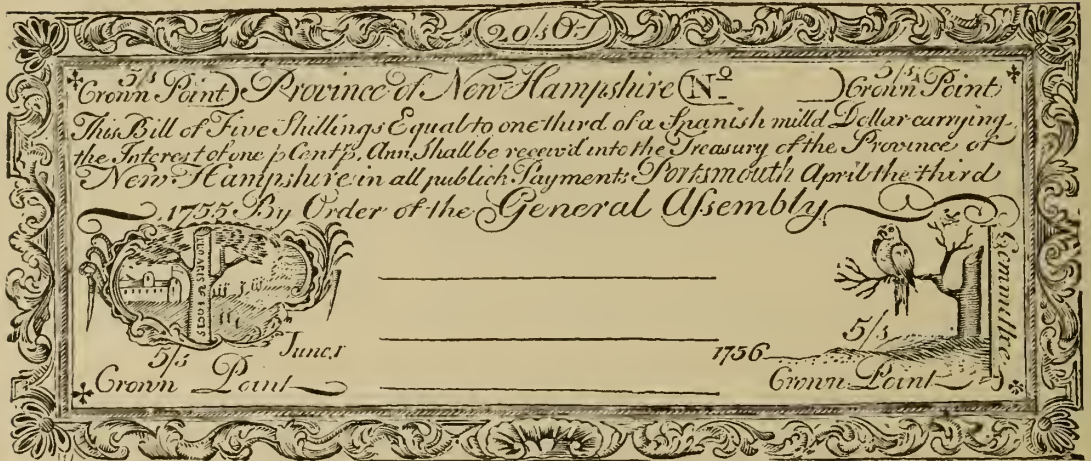 20/s O:T
5/s 5/s
Crown Point) Province of New Hampshire (No ) Crown Point
This Bill of Five Shillings Equal to one third of a Spanish milld Dollar carrying
the Interest of one p Cent p. Ann, Shall be receiv'd into the Treasury of the Province of
New Hampshire in all publick Payments Portsmouth April the third
1755 By Order of the General Assembly
ARIS & FOCIS
5/s
June 1 1756
5/s
Crown Point Crown Point